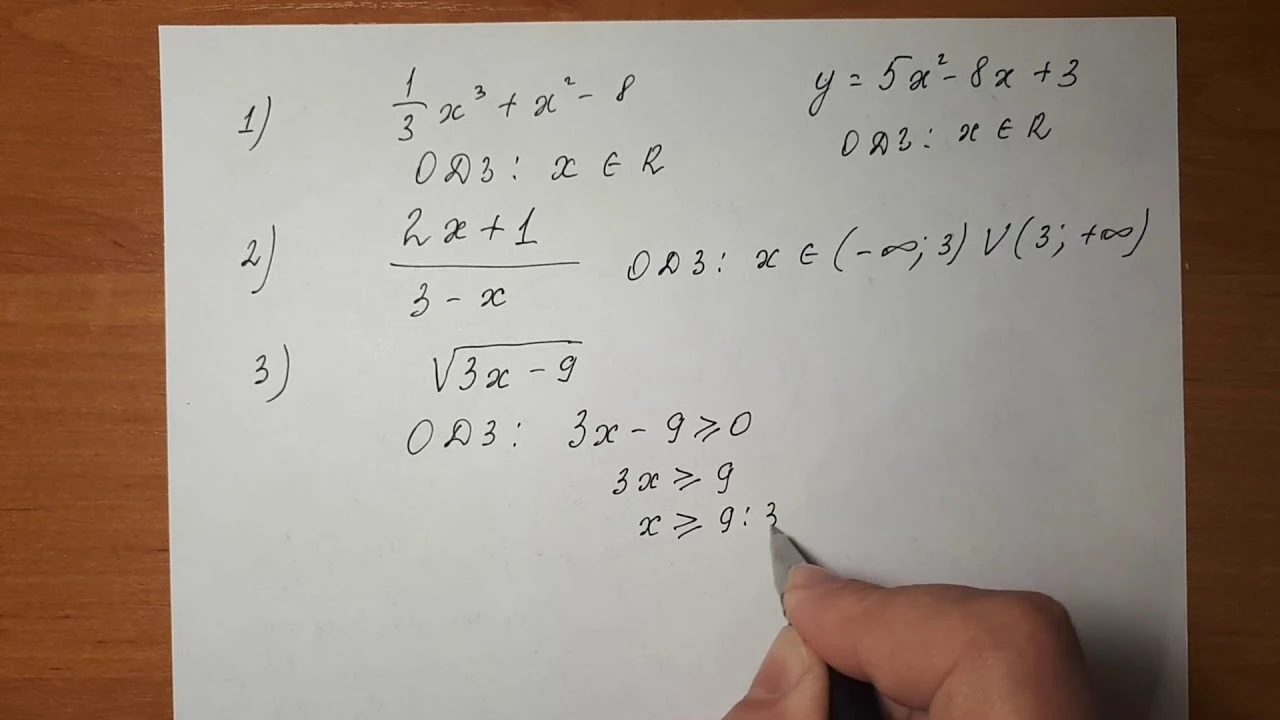 1) 1/3 x³ + x² - 8 y = 5x² - 8x + 3
ОДЗ: x ∈ R ОДЗ: x ∈ R
2) (2x + 1)/(3 - x) ОДЗ: x ∈ (-∞; 3) V (3; +∞)
3) √(3x - 9)
ОДЗ: 3x - 9 ⩾ 0
3x ⩾ 9
x ⩾ 9 : 3